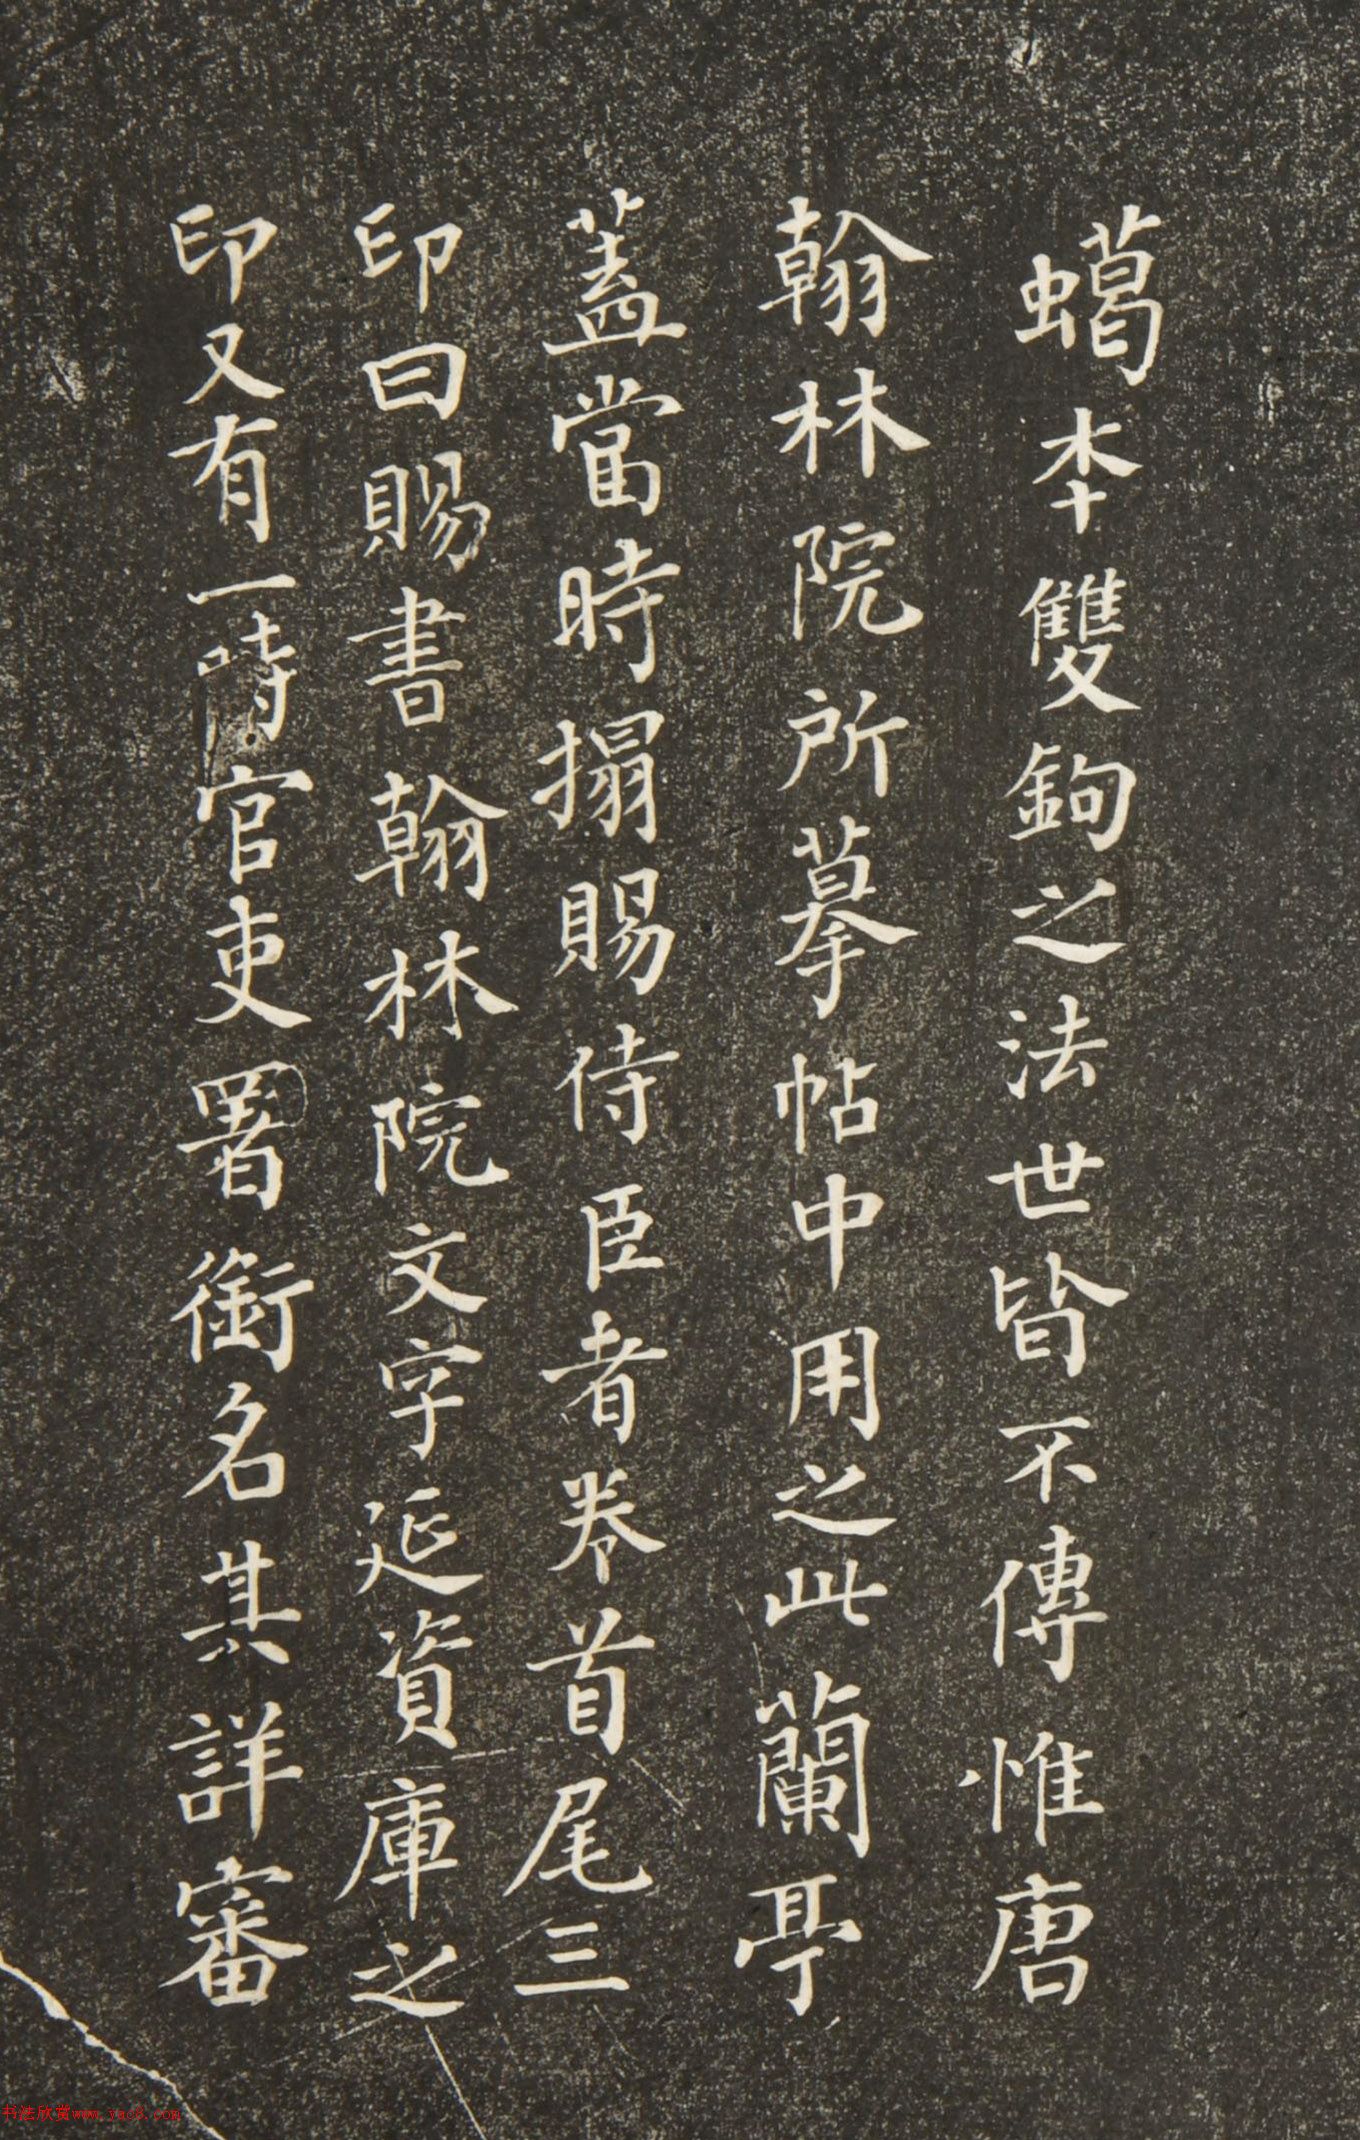 蠟本雙鉤之法世皆不傳惟唐
翰林院所摹帖中用之此蘭亭
蓋當時搨賜侍臣者卷首尾三
印曰賜書翰林院文字延資庫之
印又有一時官吏署銜名其詳審
书法欣赏www.yac8.com